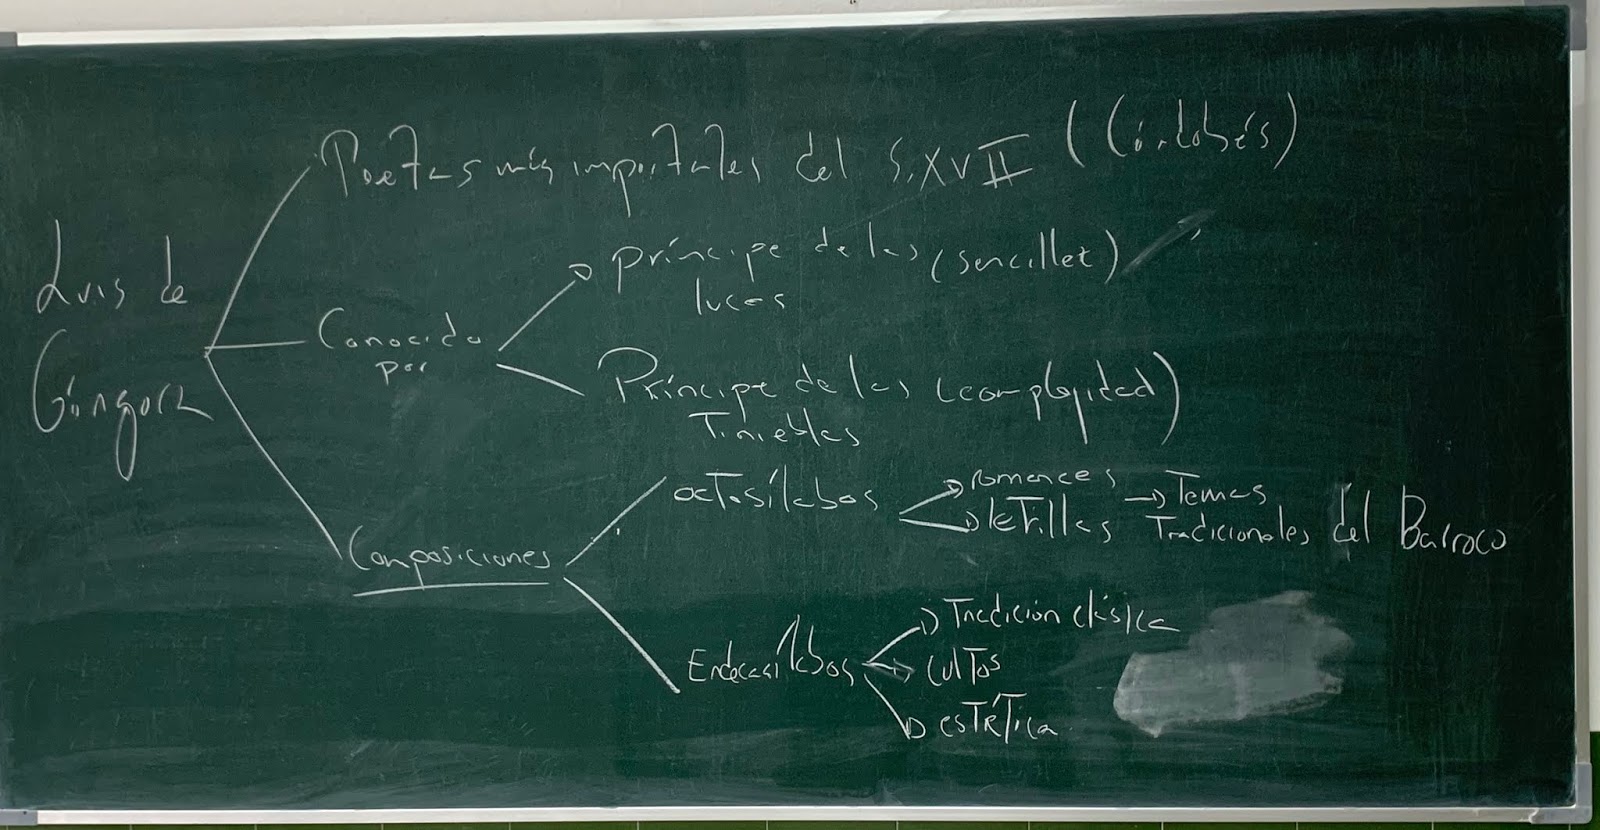 Luis de
Góngora
Poetas más importales del S.XVII (Córdobés)
Conocido
por
príncipe de las (sencillet)
luces
Príncipe de las (complejidad)
Tinieblas
Composiciones
octosílabos
romances
letrillas
→ Temas
Tradicionales del Barroco
Endecasílabos
Tradición clásica
cultos
estética